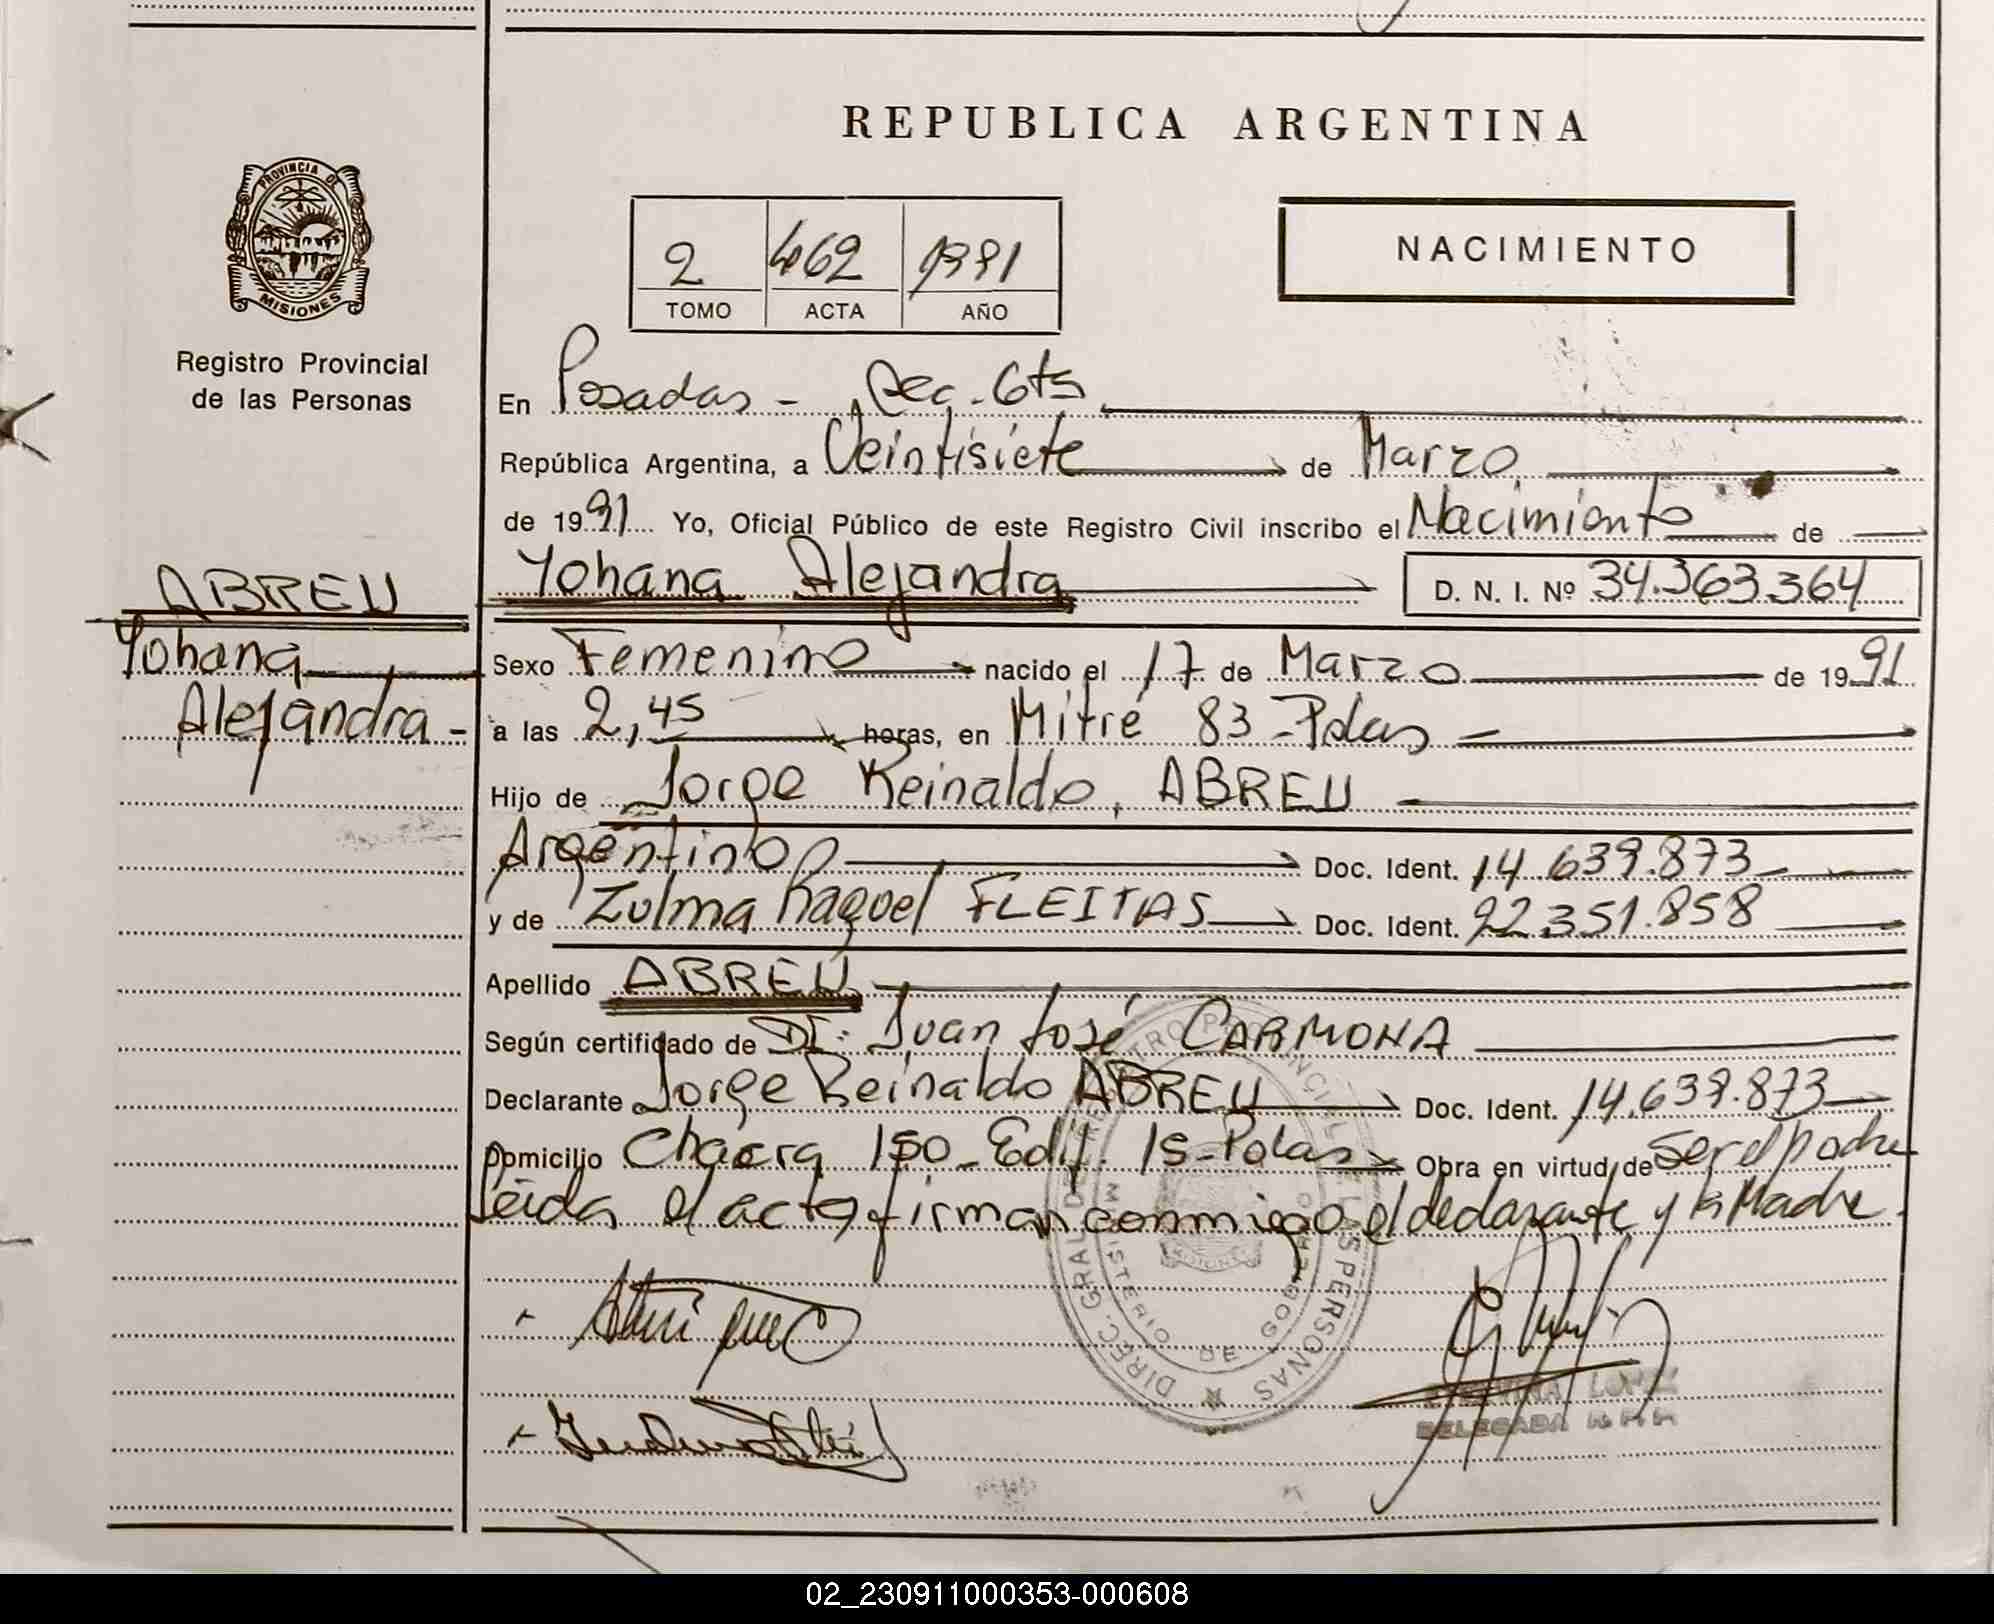 REPUBLICA ARGENTINA
PROVINCIA DE
MISIONES
Registro Provincial
de las Personas
2 462 1991
TOMO ACTA AÑO
NACIMIENTO
En Posadas - Sec. 6ta
República Argentina, a Veintisiete de Marzo
de 1991 Yo, Oficial Público de este Registro Civil inscribo el Nacimiento de
Yohana Alejandra D. N. I. Nº 34.363.364
ABREU
Yohana
Alejandra -
Sexo Femenino nacido el 17 de Marzo de 1991
a las 2,45 horas, en Mitre 83 - Pdas -
Hijo de Jorge Reinaldo, ABREU
Argentino Doc. Ident. 14.639.873
y de Zulma Raquel FLEITAS Doc. Ident. 22.351.858
Apellido ABREU
Según certificado de Dr. Juan José CARMONA
Declarante Jorge Reinaldo ABREU Doc. Ident. 14.639.873
Domicilio Chacra 150 - Edif. 15 - Pdas Obra en virtud de ser el padre
Leida el acta firman conmigo el declarante y la Madre.
DIREC. GRAL. DE REGISTRO PROVINCIAL DE LAS PERSONAS
MINISTERIO DE GOBIERNO
LOPEZ
DELEGADA R.P.P.
02_230911000353-000608